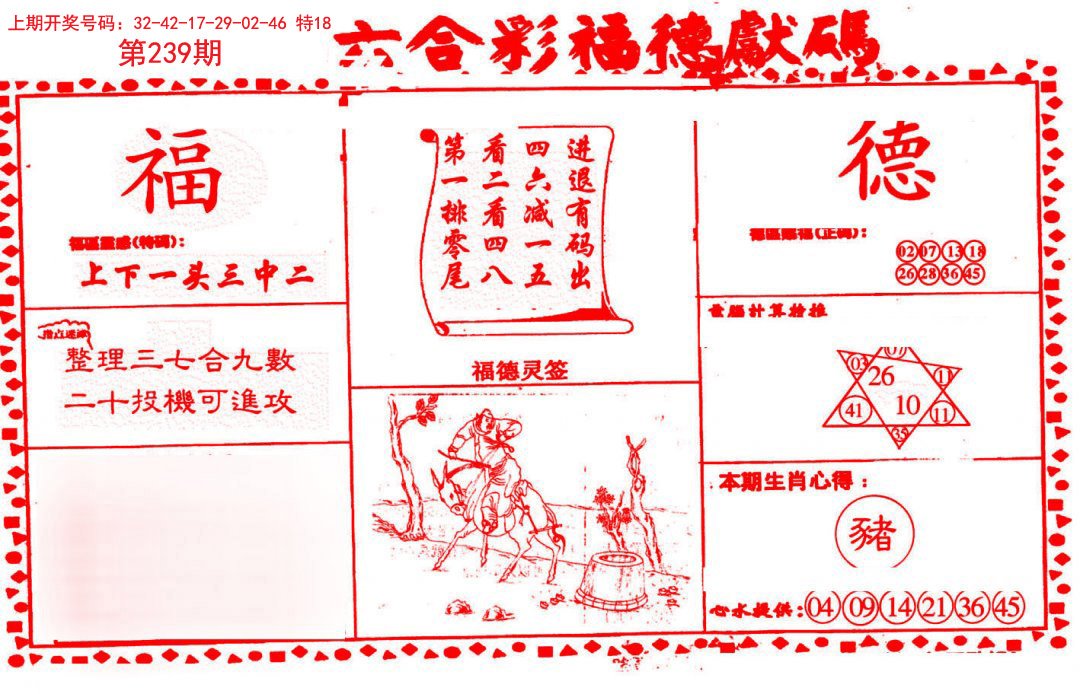 上期开奖号码：32-42-17-29-02-46 特18
第239期
六合彩福德獻碼
福
福區靈感(特碼)：
上下一头三中二
整理三七合九數
二十投機可進攻
进退有码出
四六减一五
看二看四八
第一排零尾
福德灵签
德
02 07 13 18
26 28 36 45
電腦計算特推
03 07 1
26
41 10 11
35
本期生肖心得：
豬
心水提供：04 09 14 21 36 45